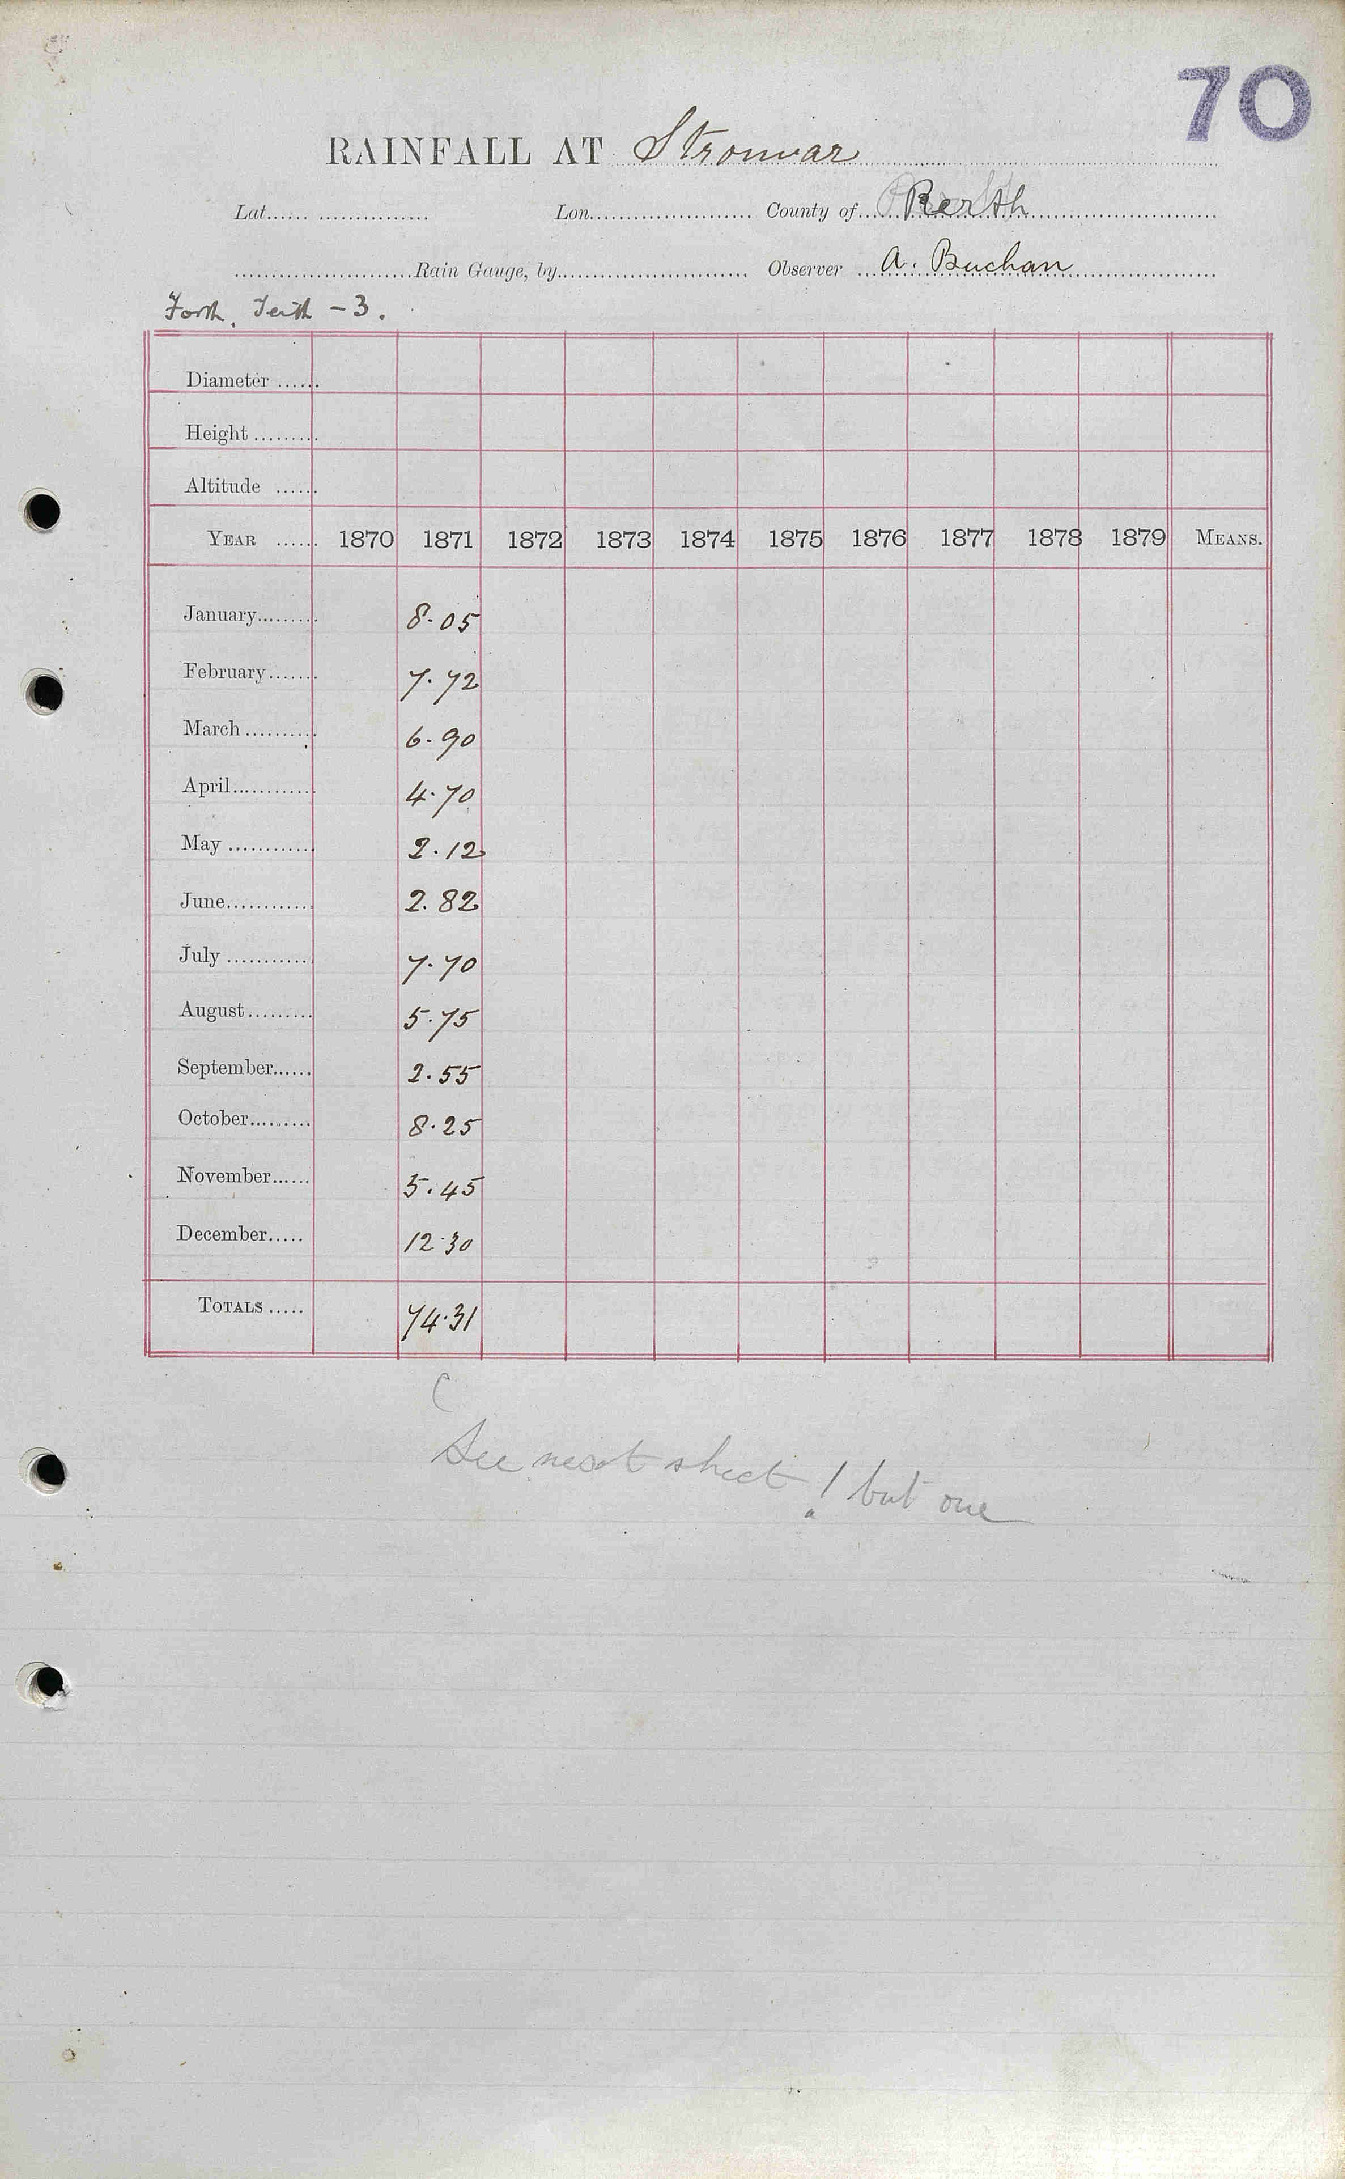 70
RAINFALL AT Stronvar
Lat. Lon. County of Perth
Rain Gauge, by Observer A. Buchan
Forth, Teith - 3.
Diameter
Height
Altitude
YEAR 1870 1871 1872 1873 1874 1875 1876 1877 1878 1879 MEANS.
January 8.05
February 7.72
March 6.90
April 4.70
May 2.12
June 2.82
July 7.70
August 5.75
September 2.55
October 8.25
November 5.45
December 12.30
TOTALS 74.31
See next sheet ! but one